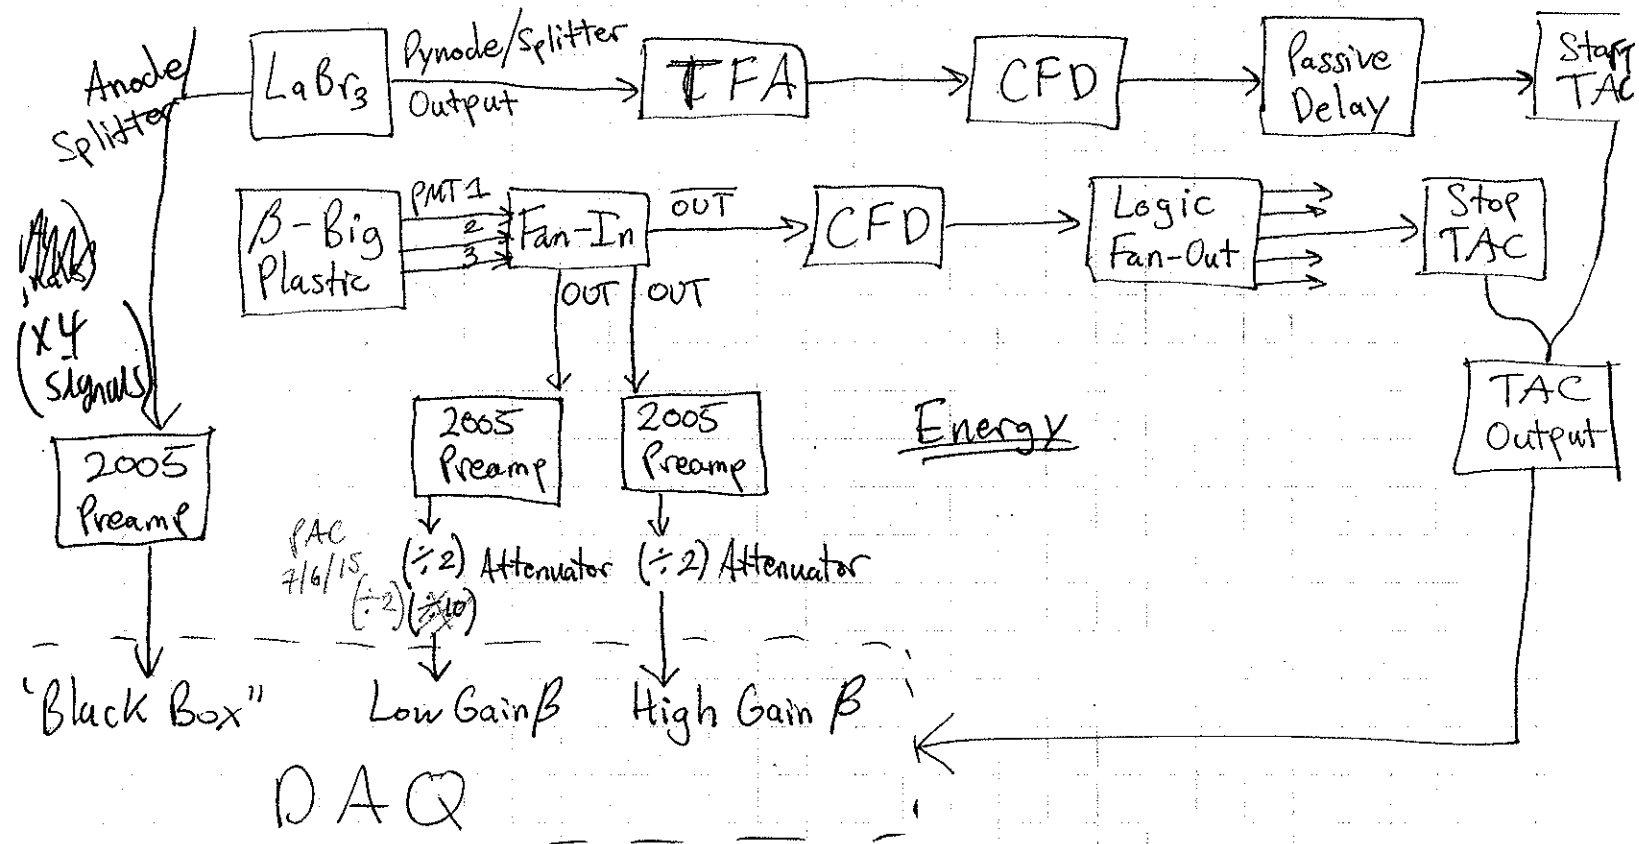 Anode/
Splitter
LaBr3
Dynode/Splitter
Output
TFA
CFD
Passive
Delay
Start
TAC
β-Big
Plastic
PMT1
2
3
Fan-In
OUT
CFD
Logic
Fan-Out
Stop
TAC
OUT
OUT
(x4
signals)
2005
Preamp
2005
Preamp
2005
Preamp
Energy
TAC
Output
PAC
7/6/15
(÷2) Attenuator
(÷2) Attenuator
(÷2) (÷10)
"Black Box"
Low Gain β
High Gain β
DAQ